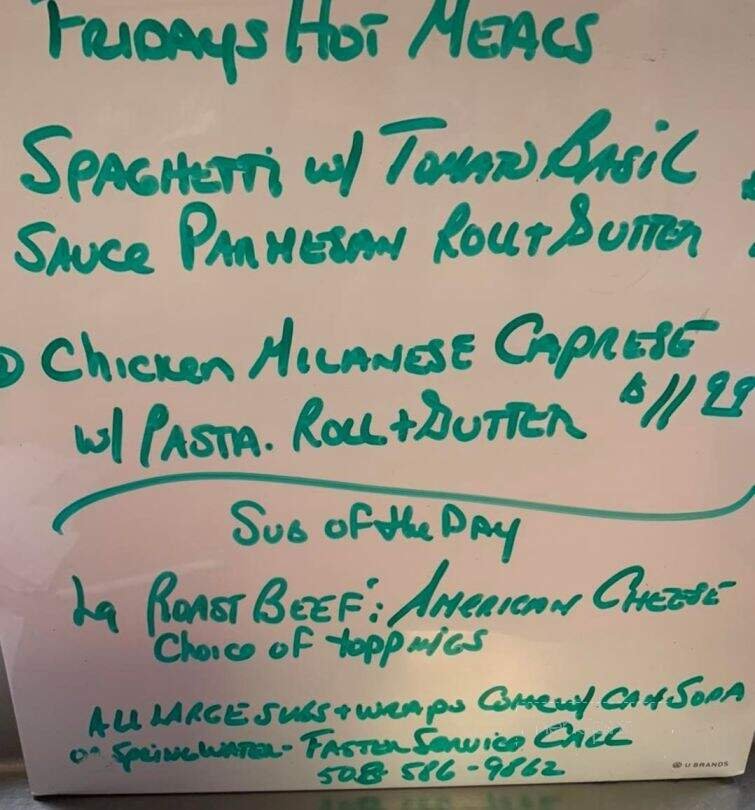 FRIDAYS HOT MEALS
SPAGHETTI w/ TOMATO BASIL
SAUCE PARMESAN ROLL + BUTTER
Chicken MILANESE CAPRESE
w/ PASTA. ROLL + BUTTER $11 99
SUB OF the DAY
Lg ROAST BEEF : AMERICAN CHEESE
Choice OF toppings
ALL LARGE SUBS + WRAPS COME w/ CAN SODA
OR SPRING WATER - FASTER SERVICE CALL
508 586-9862
U BRANDS